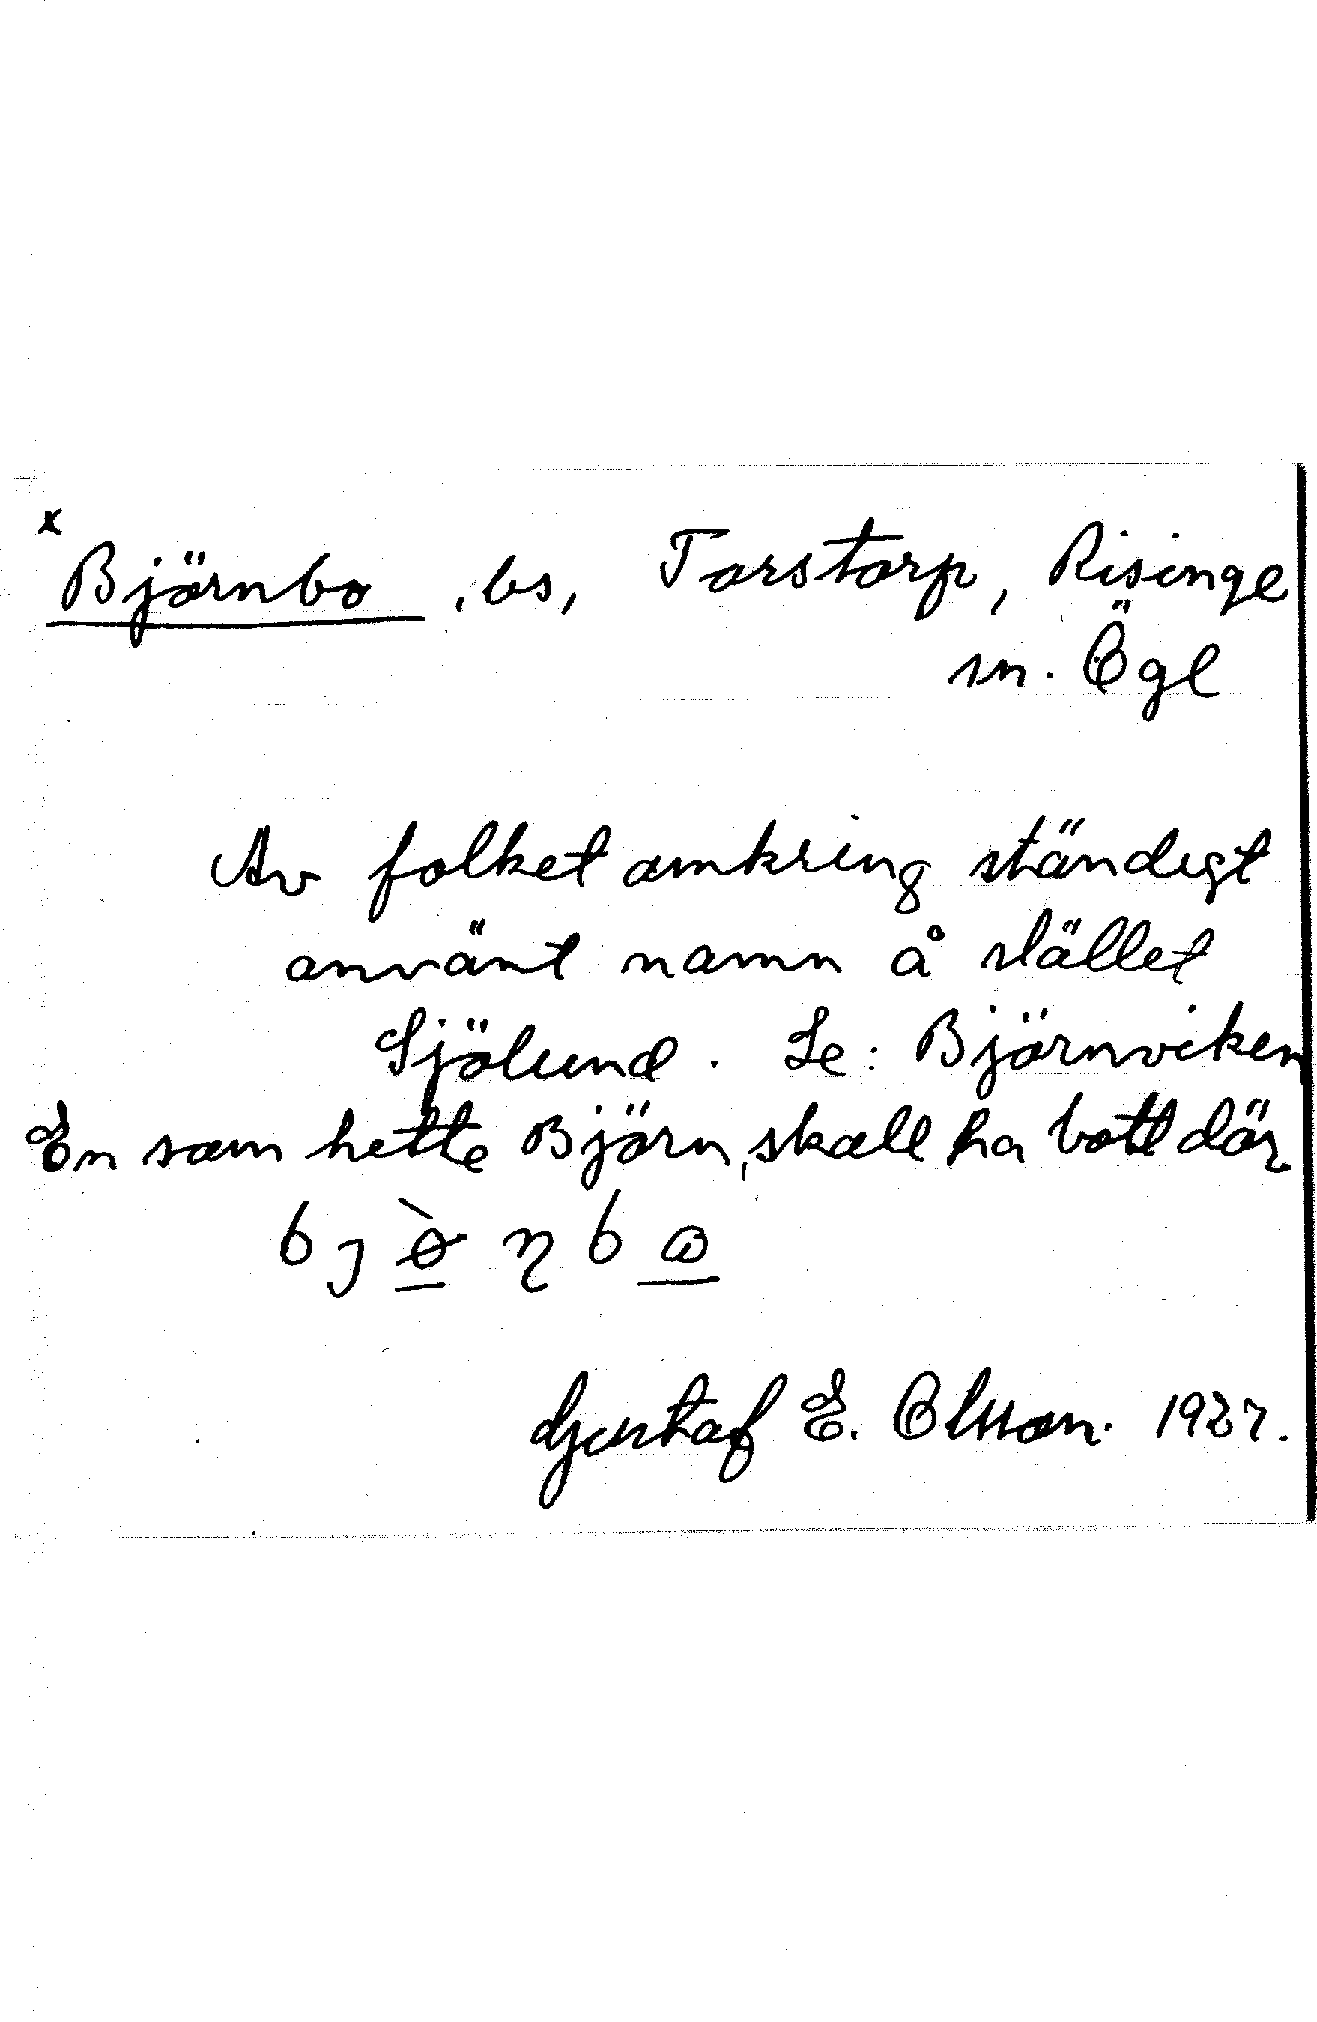 x
Björnbo, bs, Torstorp, Risinge
sn. Ögl
Av folket omkring ständigt
använt namn å stället
Sjölund. Se: Björnviken
En som hette Björn, skall ha bott där
Gustaf E. Olsson. 1927.